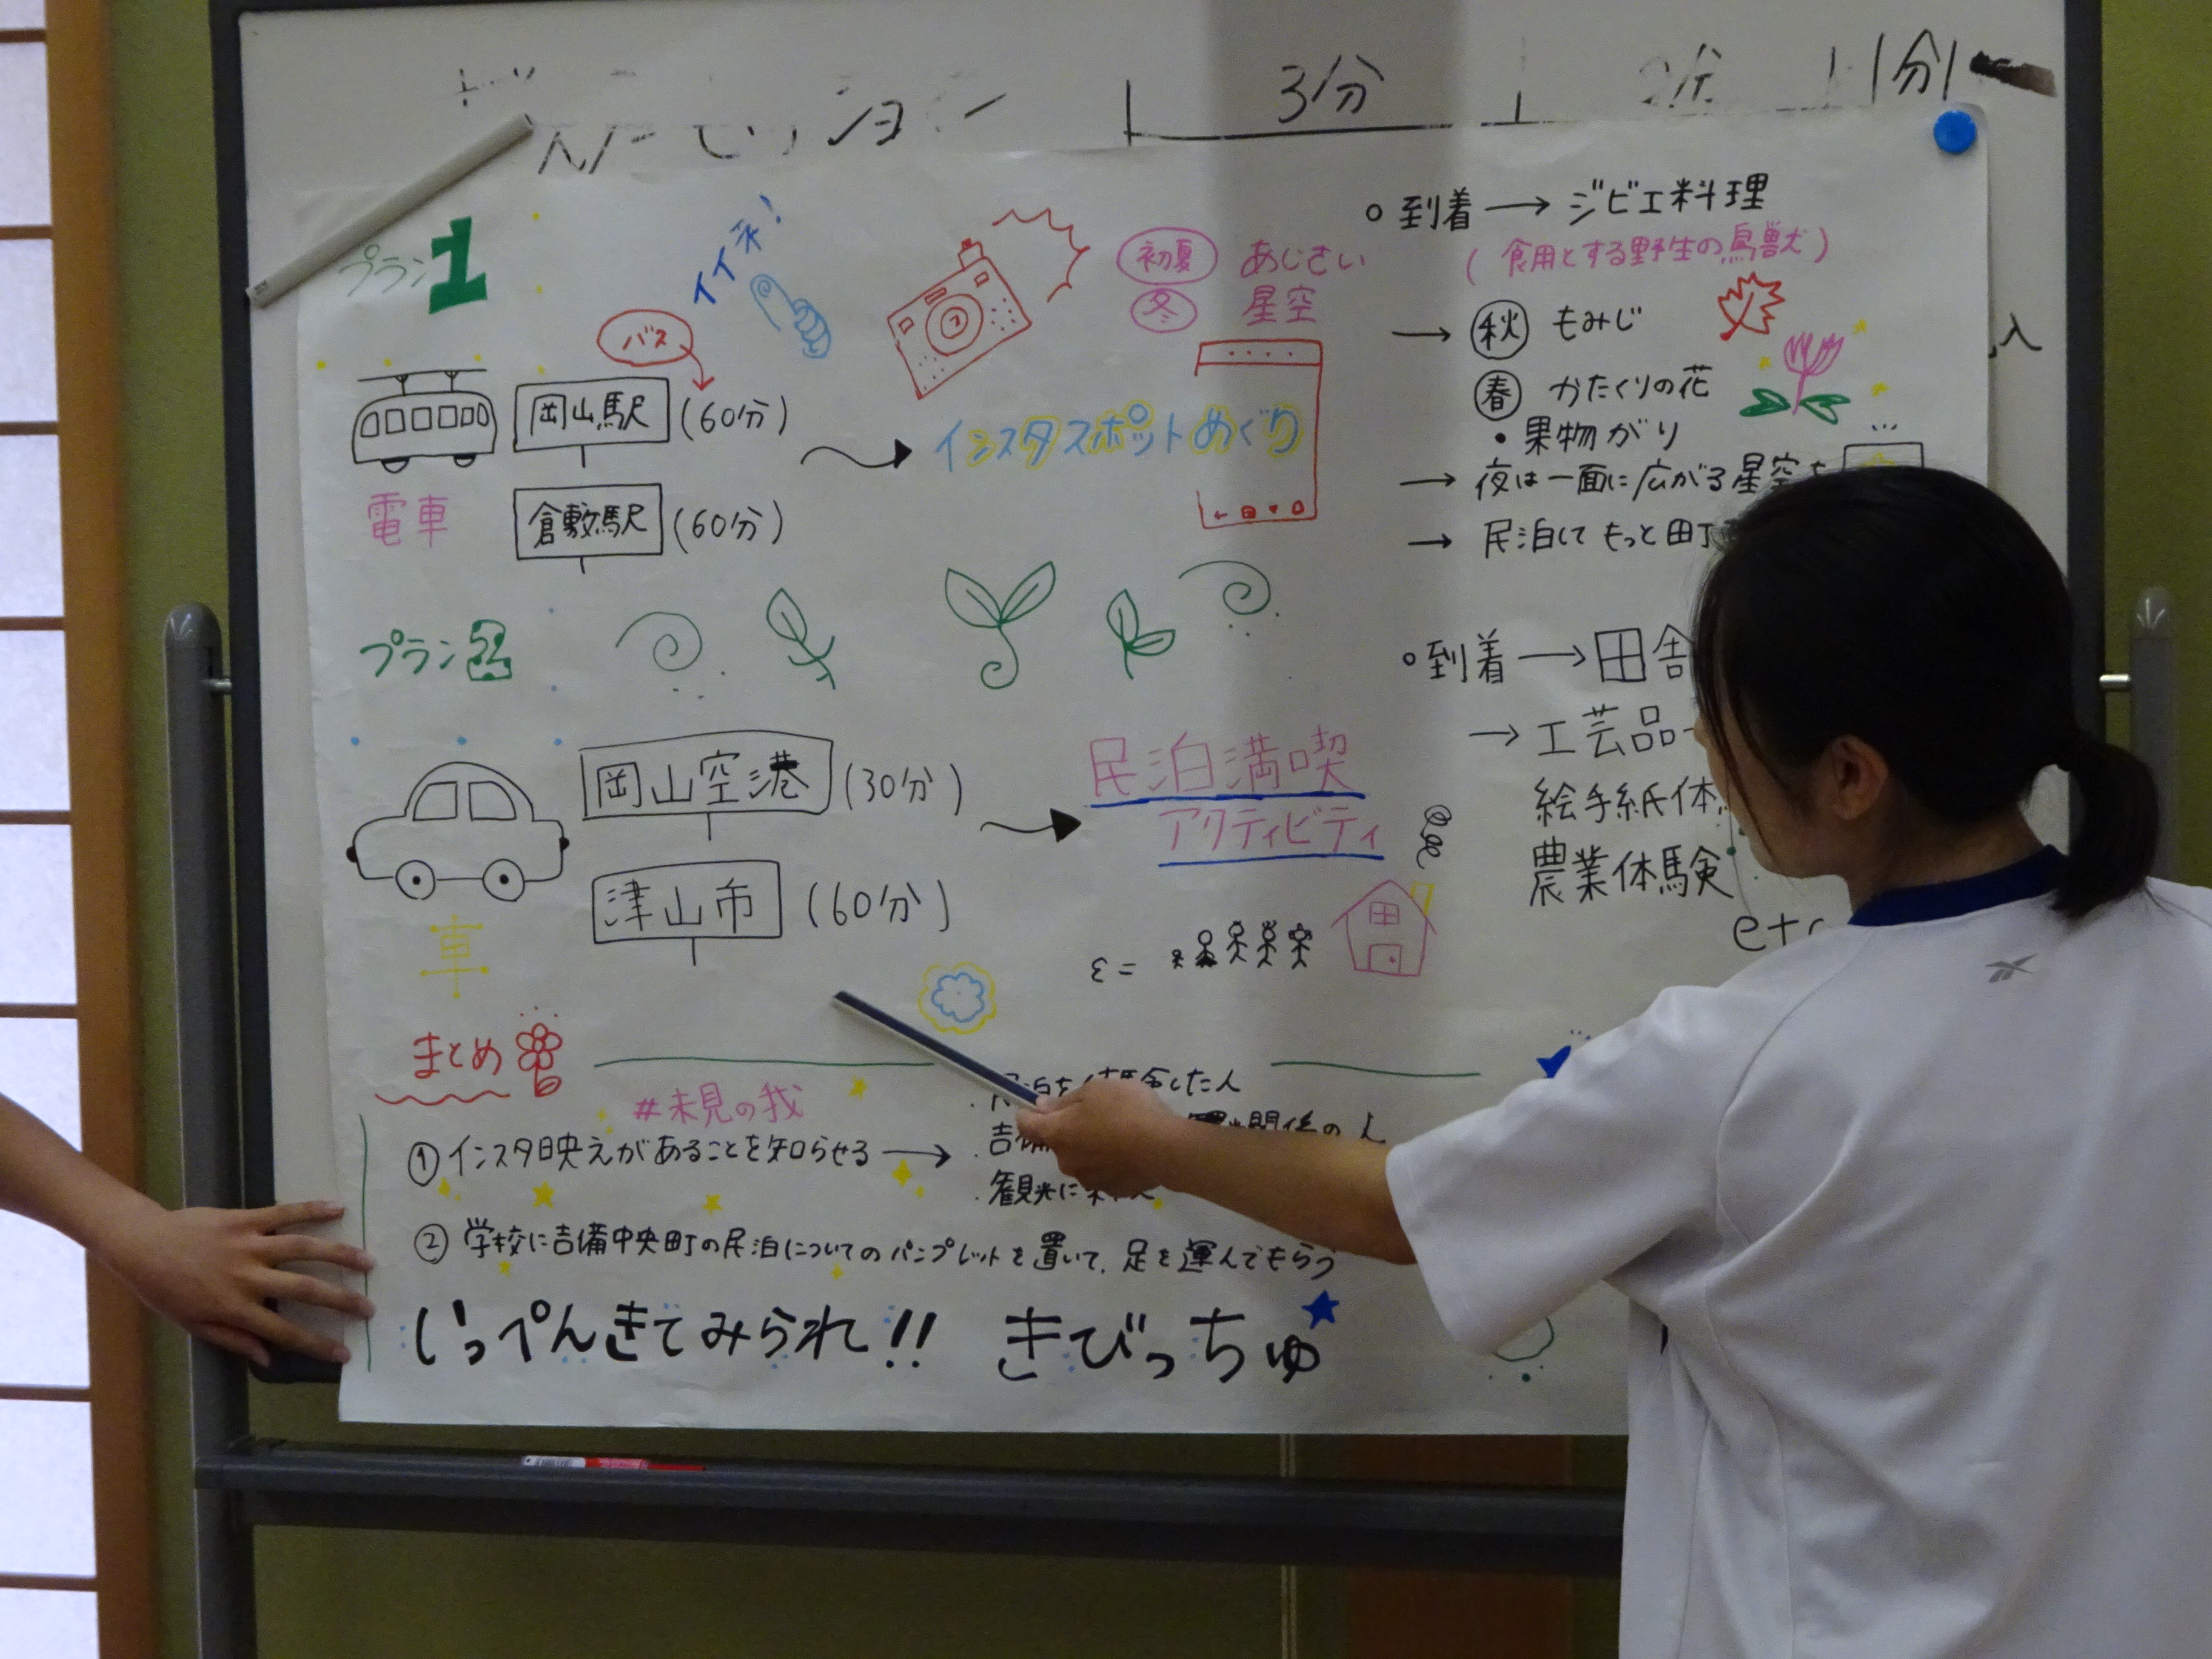 3分
1分
プラン1
イイネ!
バス
岡山駅 (60分)
倉敷駅 (60分)
電車
インスタスポットめぐり
初夏 あじさい
冬 星空
○到着→ジビエ料理
(食用とする野生の鳥獣)
→ 秋 もみじ
春 かたくりの花
・果物がり
→ 夜は一面に広がる星空を
→ 民泊して もっと田丁
プラン2
岡山空港 (30分)
津山市 (60分)
車
民泊満喫
アクティビティ
○到着→田舎
→ 工芸品
絵手紙体
農業体験
etc
まとめ
#未見の我
① インスタ映えがあることを知らせる →
・民泊を した人
・吉備 関係の人
・観光に
② 学校に吉備中央町の民泊についてのパンフレットを置いて、足を運んでもらう
いっぺんきてみられ!! きびっちゅ